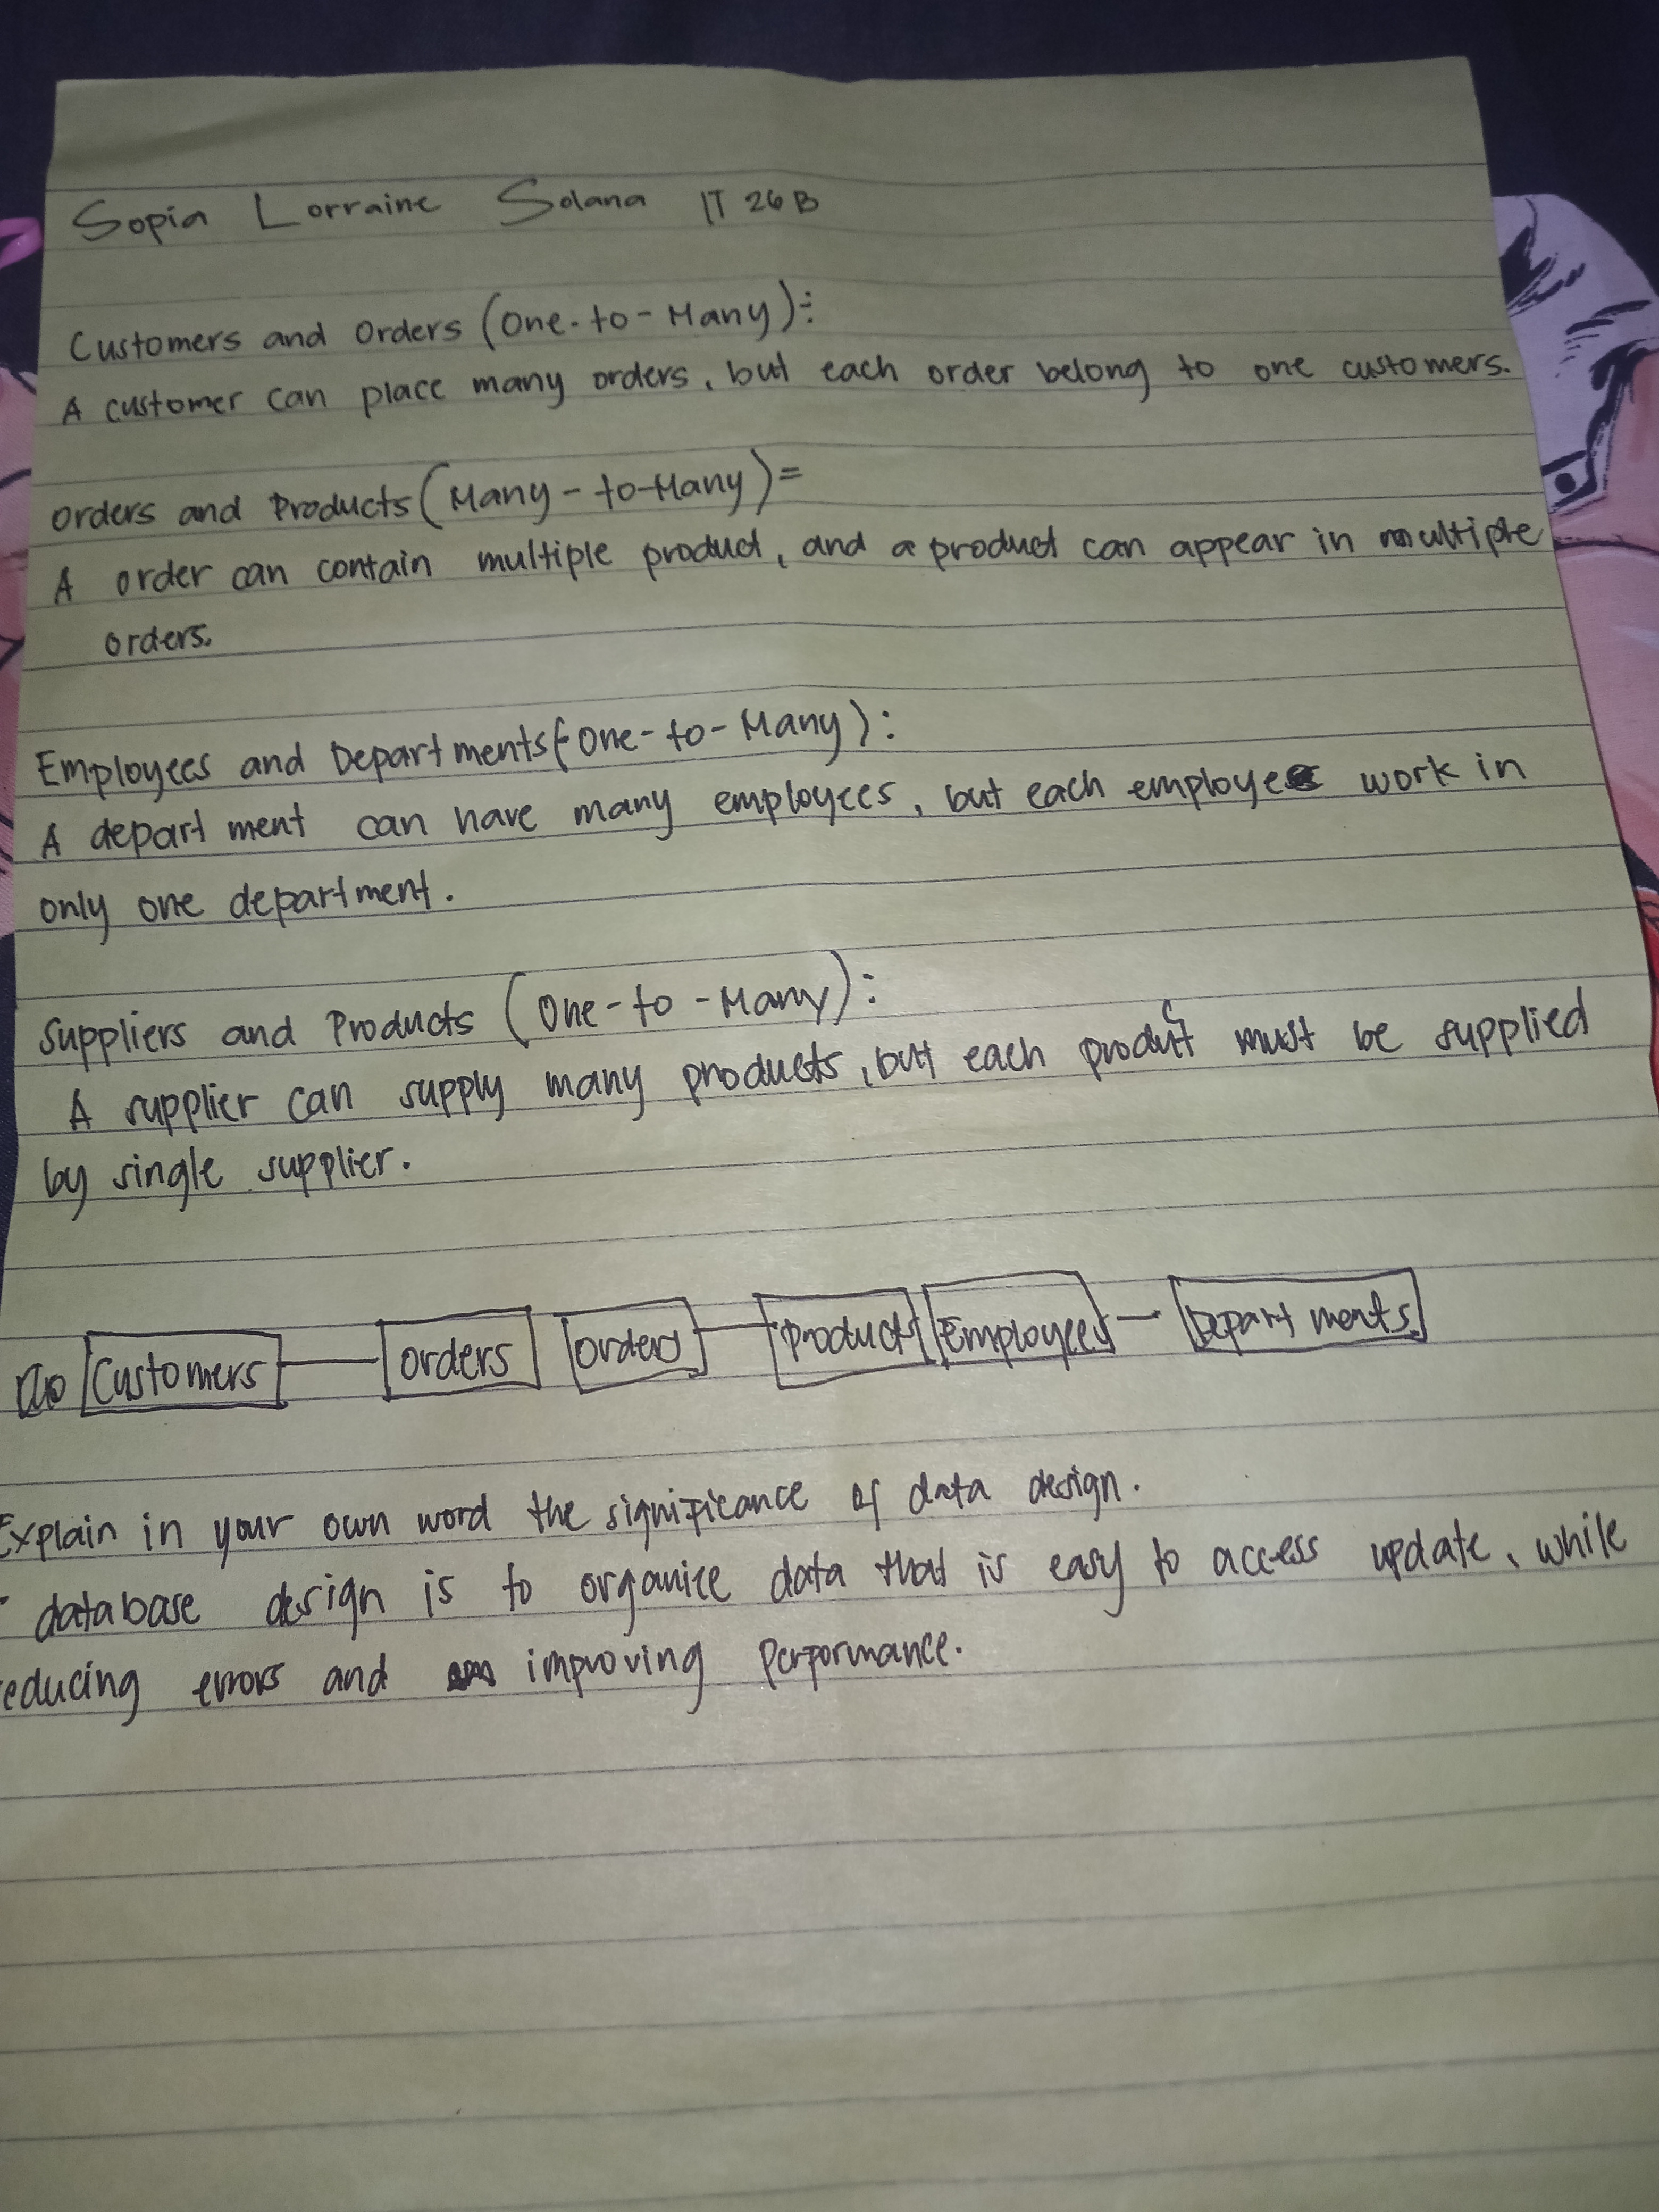 Sopia Lorraine Solana IT 26B
Customers and Orders (One-to-Many):
A customer can place many orders, but each order belong to one customers.
Orders and Products (Many-to-Many)=
A order can contain multiple product, and a product can appear in multiple
orders.
Employees and Departments (One-to-Many):
A department can have many employees, but each employee work in
only one department.
Suppliers and Products (One-to-Many):
A supplier can supply many products, but each product must be supplied
by single supplier.
Customers orders orders Products Employees Departments
Explain in your own word the significance of data design.
- database design is to organize data that is easy to access update, while
reducing errors and improving performance.